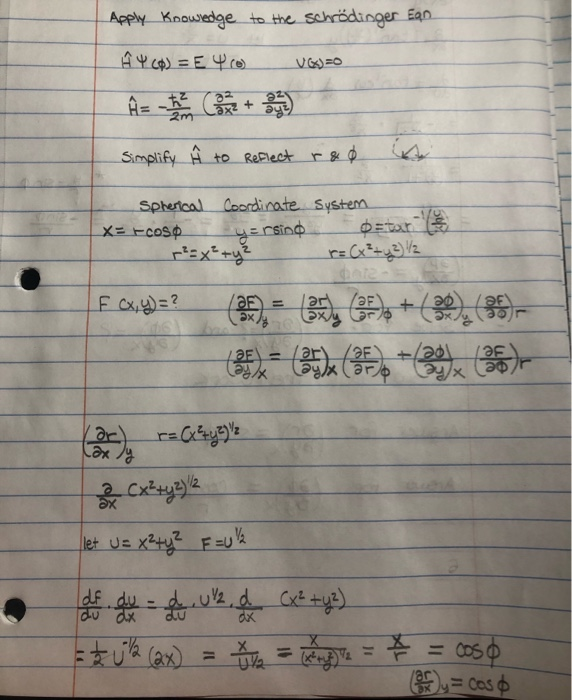 Apply Knowledge to the Schrödinger Eqn
ĤΨ(φ) = E Ψ(φ)    V(x)=0
Ĥ = -ħ²/2m (∂²/∂x² + ∂²/∂y²)
Simplify Ĥ to Reflect r & φ
Spherical Coordinate System
x = rcosφ    y = rsinφ    φ = tan⁻¹(y/x)
r² = x² + y²    r = (x² + y²)^1/2
F(x,y) = ?    (∂F/∂x)_y = (∂r/∂x)_y (∂F/∂r)_φ + (∂φ/∂x)_y (∂F/∂φ)_r
(∂F/∂y)_x = (∂r/∂y)_x (∂F/∂r)_φ + (∂φ/∂y)_x (∂F/∂φ)_r
(∂r/∂x)_y    r = (x² + y²)^1/2
∂/∂x (x² + y²)^1/2
let U = x² + y²    F = U^1/2
dF/dU · dU/dx = d/dU · U^1/2 · d/dx (x² + y²)
= 1/2 U^-1/2 (2x) = x/U^1/2 = x/(x² + y²)^1/2 = x/r = cosφ
(∂r/∂x)_y = cosφ